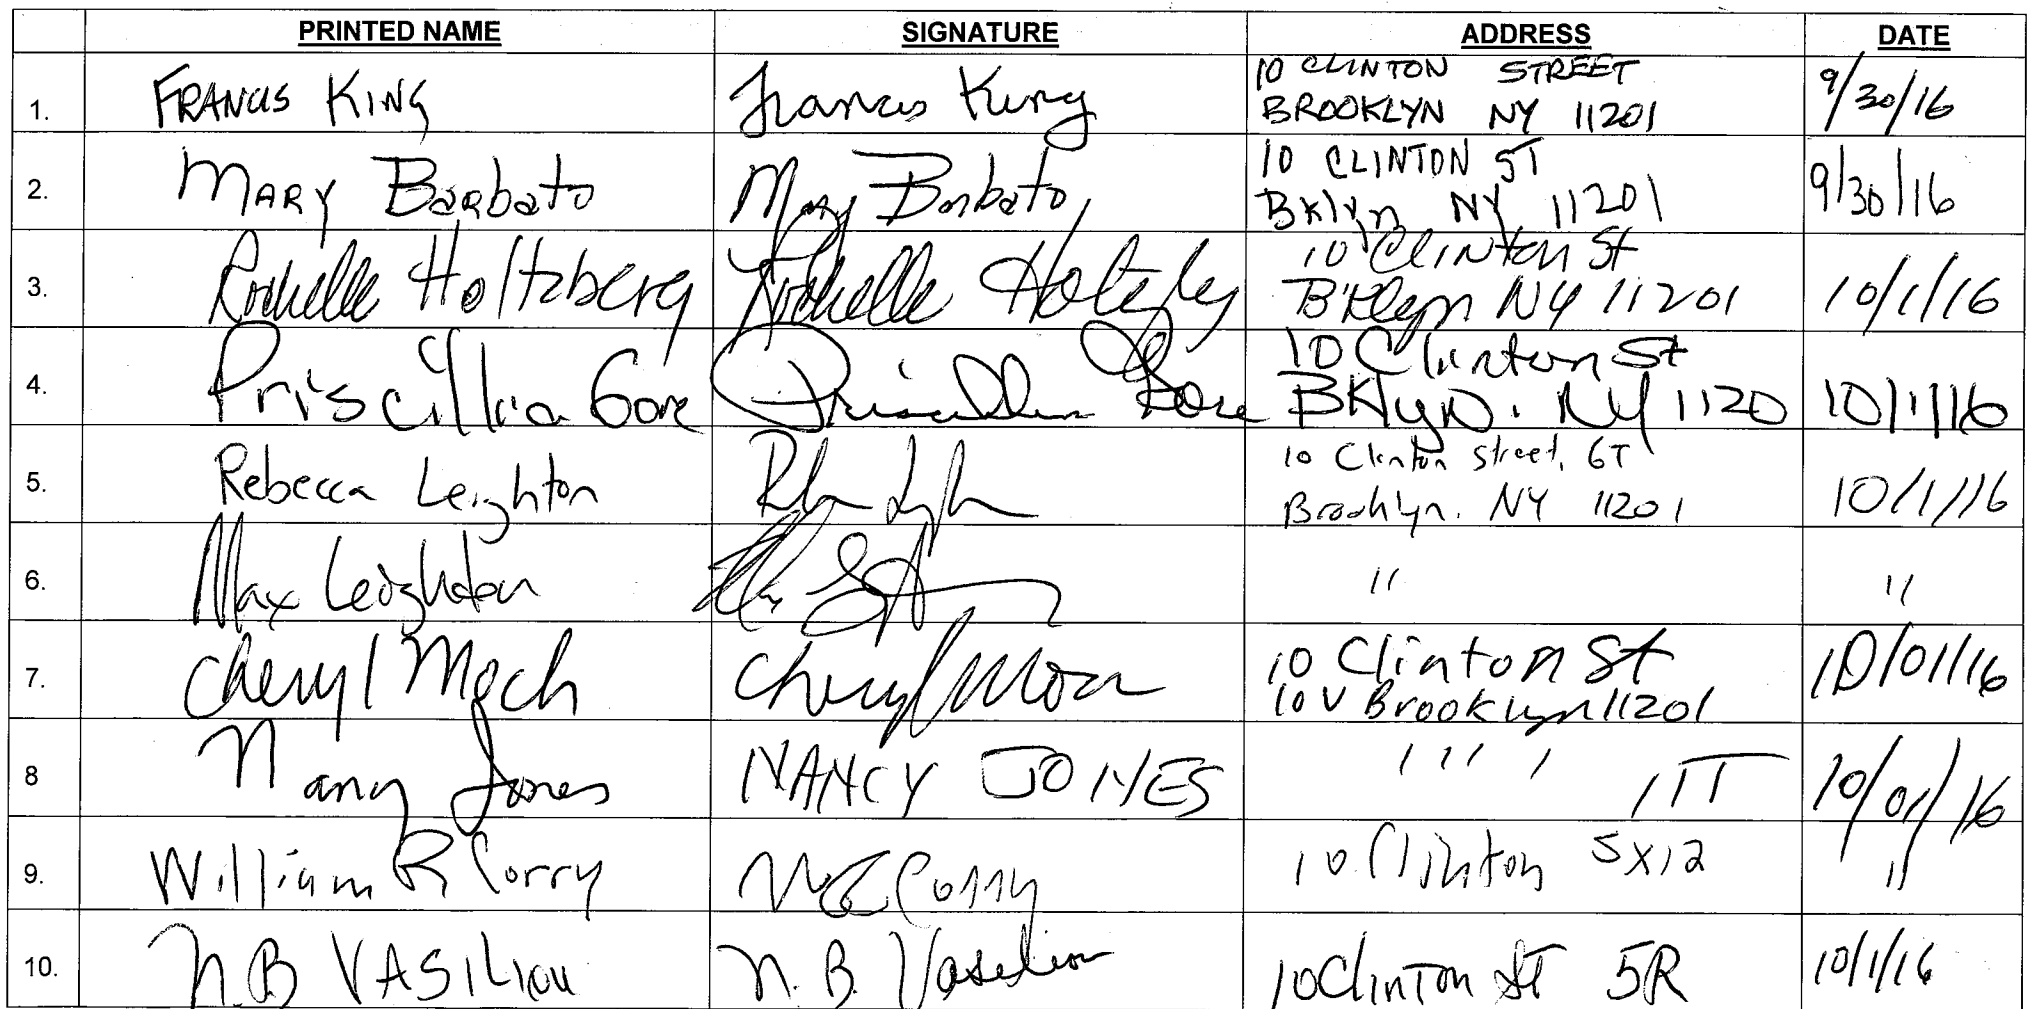 PRINTED NAME SIGNATURE ADDRESS DATE
1. FRANCIS KING Francis King 10 CLINTON STREET 9/30/16
BROOKLYN NY 11201
2. MARY BARbato Mary Barbato 10 CLINTON ST 9/30/16
BKlyn NY 11201
3. Rochelle Holtzberg Rochelle 10 Clinton St 10/1/16
B'klyn NY 11201
4. Priscillia Gore Priscillia Gore 10 Clinton St 10/1/16
BKlyn. NY 1120
5. Rebecca Leighton 10 Clinton Street, 6T 10/1/16
Brooklyn, NY 11201
6. Max Leighton " "
7. Cheryl Moch Cheryl Moch 10 Clinton St 10/01/16
10V Brooklyn 11201
8 Nancy Jones NANCY JONES ' ' ' ' 11T 10/01/16
9. William R Corry Corry 10 Clinton "
10. N.B VASILIOU N. B. Vasiliou 10 Clinton St 5R 10/1/16